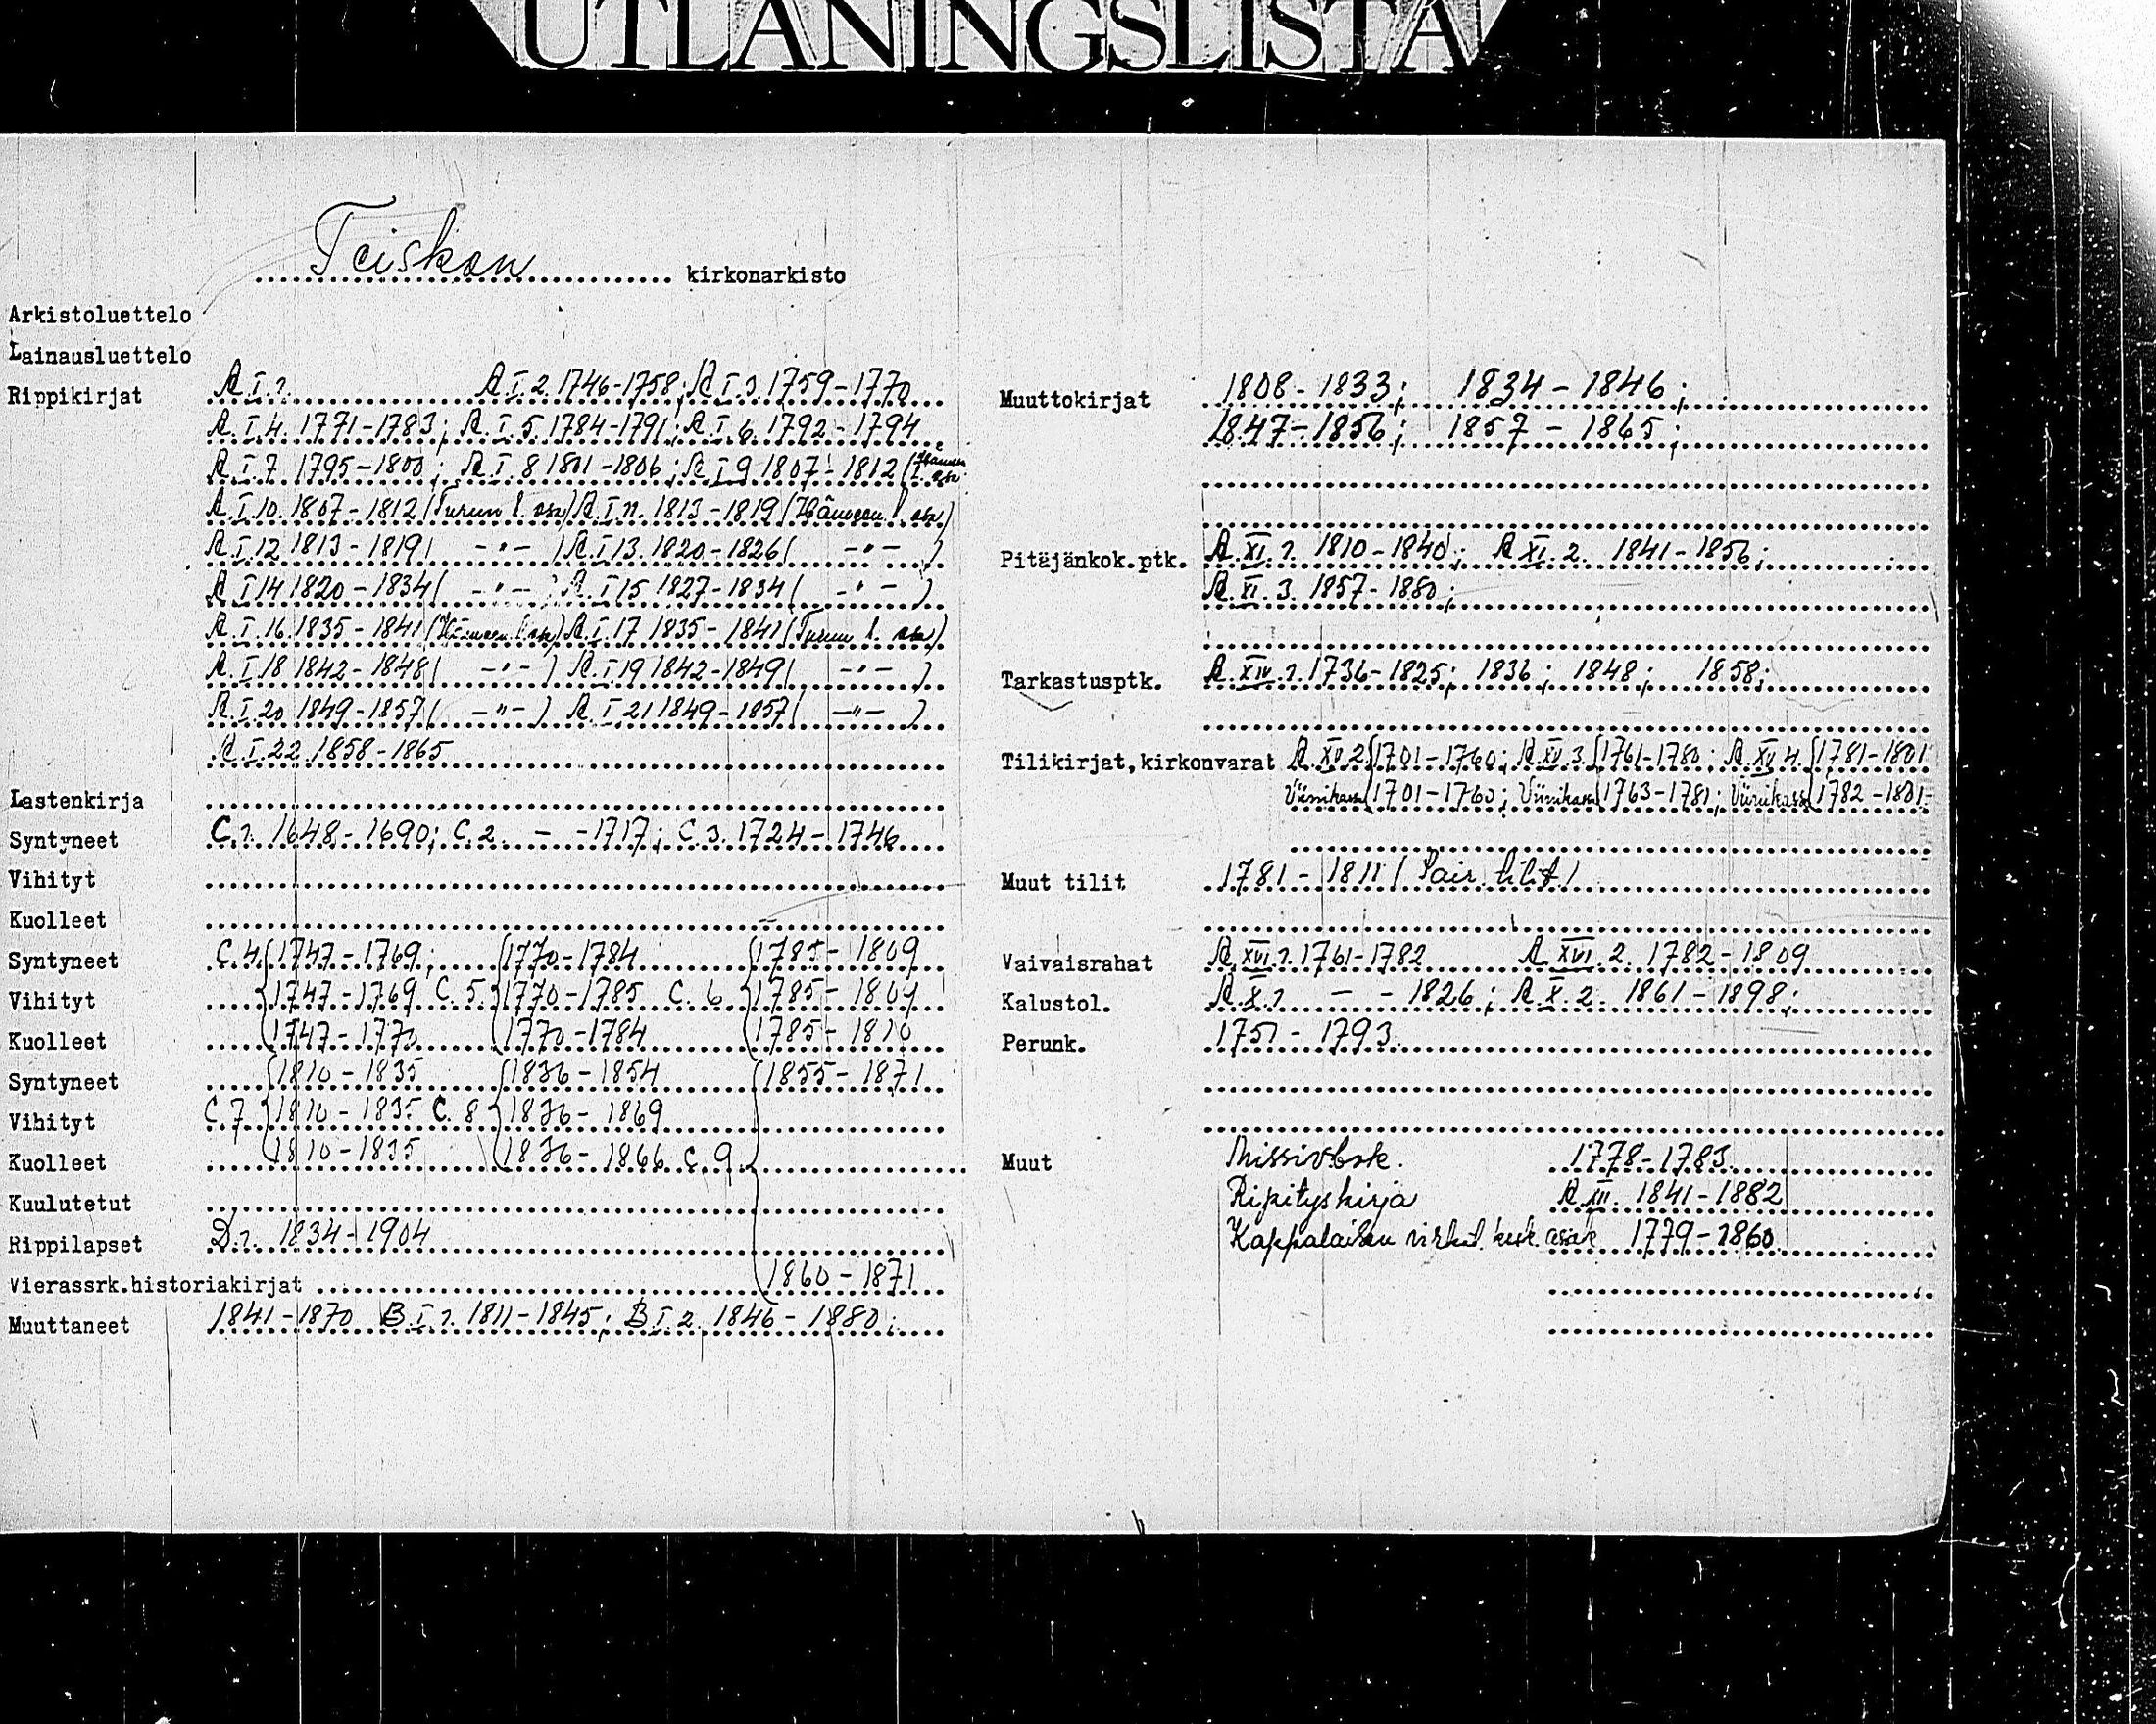 UTLÅNINGSLISTA
Teiskon kirkonarkisto
Arkistoluettelo
Lainausluettelo
Rippikirjat A.I.1. A.I.2 1746-1758; A.I.3. 1759-1770
A.I.4. 1771-1783; A.I.5 1784-1791; A.I.6. 1792-1794
A.I.7 1795-1800; A.I.8 1801-1806; A.I.9 1807-1812 (Hämeen l. osa
A.I.10. 1807-1812 (Turun l. osa) A.I.11. 1813-1819 (Hämeen l. osa)
A.I.12 1813-1819 ( -"- ) A.I.13. 1820-1826 ( -"- )
A.I.14 1820-1834 ( -"- ) A.I.15 1827-1834 ( -"- )
A.I.16. 1835-1841 (Hämeen l. osa) A.I.17 1835-1841 (Turun l. osa)
A.I.18 1842-1848 ( -"- ) A.I.19 1842-1849 ( -"- )
A.I.20 1849-1857 ( -"- ) A.I.21 1849-1857 ( -"- )
A.I.22 1858-1865
Lastenkirja
Syntyneet C.1. 1648-1690; C.2. - -1717; C.3. 1724-1746
Vihityt
Kuolleet
Syntyneet C.4. 1747-1769; 1770-1784 1785-1809
Vihityt 1747-1769 C.5. 1770-1785 C.6 1785-1809
Kuolleet 1747-1770 1770-1784 1785-1810
Syntyneet 1810-1835 1836-1854 1855-1871
Vihityt C.7 1810-1835 C.8 1836-1869
Kuolleet 1810-1835 1836-1866 C.9
Kuulutetut
Rippilapset D.1. 1834-1904
Vierassrk.historiakirjat 1860-1871
Muuttaneet 1841-1870 B.I.1. 1811-1845; B.I.2. 1846-1880;
Muuttokirjat 1808-1833; 1834-1846;
1847-1856; 1857-1865;
Pitäjänkok.ptk. A.XI.1. 1810-1840; A.XI.2. 1841-1856;
A.XI.3. 1857-1880;
Tarkastusptk. A.XIV.1. 1736-1825; 1836; 1848; 1858;
Tilikirjat,kirkonvarat A.XV.2. 1701-1760; A.XV.3. 1761-1780; A.XV.4. 1781-1801
Viinikass 1701-1760; Viinikass 1763-1781; Viinikass 1782-1801
Muut tilit 1781-1811 (Pair. tilit)
Vaivaisrahat A.XVI.1. 1761-1782 A.XVI.2. 1782-1809
Kalustol. A.X.1 - - 1826; A.X.2. 1861-1898;
Perunk. 1751-1793
Muut Missivbok. 1778-1783
Ripityskirja A.XII. 1841-1882
Kappalaisen virkat. kosk. asiak 1779-1860